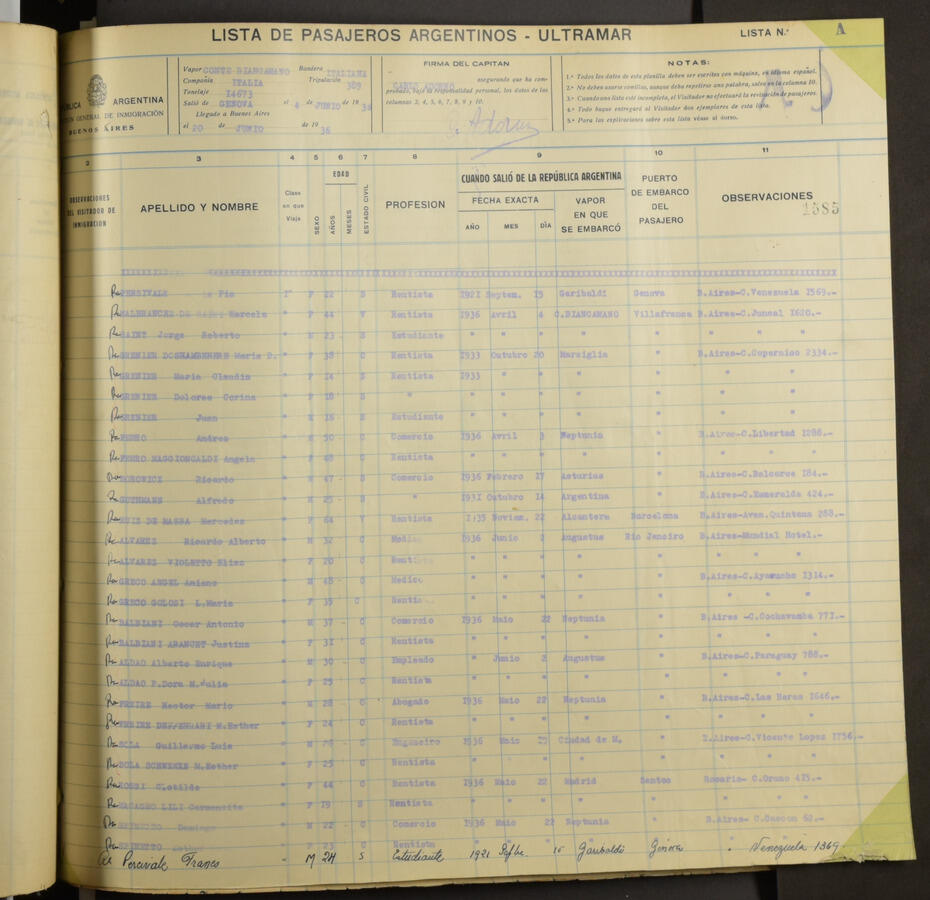 LISTA DE PASAJEROS ARGENTINOS - ULTRAMAR LISTA N.° A
ARGENTINA
GENERAL DE INMIGRACIÓN
BUENOS AIRES
Vapor CONTE BIANCAMANO Bandera ITALIANA
Compañía ITALIA Tripulación 309
Tonelaje 14673
Salió de GENOVA el 4 de JUNIO de 1936
Llegado a Buenos Aires
el 20 de JUNIO de 1936
FIRMA DEL CAPITAN
asegurando que ha comprobado, bajo su responsabilidad personal, los datos de las columnas 3, 4, 5, 6, 7, 8, 9 y 10.
NOTAS:
1.ª Todos los datos de esta planilla deben ser escritos con máquina, en idioma español.
2.ª No deben usarse comillas, aunque deba repetirse una palabra, salvo en la columna 10.
3.ª Cuando una lista esté incompleta, el Visitador no efectuará la revisación de pasajeros.
4.ª Todo buque entregará al Visitador dos ejemplares de esta lista.
5.ª Para las explicaciones sobre esta lista véase al dorso.
2 3 4 5 6 7 8 9 10 11
OBSERVACIONES DEL VISITADOR DE INMIGRACIÓN
APELLIDO Y NOMBRE
Clase en que Viaja
SEXO
EDAD
AÑOS
MESES
ESTADO CIVIL
PROFESION
CUANDO SALIÓ DE LA REPÚBLICA ARGENTINA
FECHA EXACTA
AÑO MES DÍA
VAPOR EN QUE SE EMBARCÓ
PUERTO DE EMBARCO DEL PASAJERO
OBSERVACIONES
1585
PERSIVALE Pia F 22 S Rentista 1921 Septem. 15 Garibaldi Genova B.Aires-C.Venezuela 1569.-
Marcela " F 44 V Rentista 1936 Avril 4 C.BIANCAMANO Villafranca B.Aires-C.Juncal 1620.-
SAINT Jorge Roberto " M 23 - S Estudiante " " " " " " " "
GRENIER Maria D. " F 38 C Rentista 1933 Outubro 20 Marsiglia " B.Aires-C.Copernico 2334.-
GRENIER Maria Claudia " F 14 S Rentista 1933 " " " " " "
GRENIER Dolores Corina " F 18 S " " " " " " "
GRENIER Juan " M 16 - S Estudiante " " " " " " "
PEDRO Andres " M 50 - C Comercio 1936 Avril 3 Neptunia " B.Aires-C.Libertad 1286.-
PEDRO MAGGIONCALDI Angela " F C Rentista " " " " " " "
HOROWICZ Ricardo " M 47 - S Comercio 1936 Febrero 17 Asturias " B.Aires-C.Balcarce 184.-
GUTHMANN Alfredo " M 25 - S " 1931 Outubro 14 Argentina " B.Aires-C.Esmeralda 424.-
RUIZ DE Mercedes " F 64 V Rentista 1935 Noviem. 22 Alcantara Barcelona B.Aires-Aven.Quintana 288.-
ALVAREZ Ricardo Alberto " M 32 C Medico 1936 Junio Augustus Rio Janeiro B.Aires-Mundial Hotel.-
ALVAREZ VIOLETTO Elisa " F 20 C Rentista " " " " " " " "
GRECO ANGEL Amiano " M 48 - C Medico " " " " " B.Aires-C.Ayacucho 1314.-
GRECO GOLOSI L.Maria " F 35 C Rentista " " " " " " " "
BALBIANI Oscar Antonio " M 37 - C Comercio 1936 Maio 22 Neptunia " B.Aires -C.Cochavamba 771.-
BALBIANI ARANGUT Justina " F 31 C Rentista " " " " " " " "
ALDAO Alberto Enrique " M 30 - C Empleado " Junio 2 Augustus " B.Aires-C.Paraguay 788.-
ALDAO P.Dora M.Julia " F 25 C Rentista " " " " " " "
FREIRE Hector Mario " M 28 - C Abogado 1936 Maio 22 Neptunia " B.Aires-C.Las Heras 1646.-
FREIRE DEFFERRARI M.Esther " F 24 C Rentista " " " " " " " "
SOLA Guillermo Luis " M C Engeneiro 1936 Maio 25 Ciudad de M. " B.Aires-C.Vicente Lopez 1756.-
SOLA SCHWENKE M.Esther " F 25 C Rentista " " " " " " " "
ROSSI Clotilde " F 44 C Rentista 1936 Maio 22 Madrid Santos Rosario- C.Orono 475.-
LILI Carmencita " F 19 S Rentista " " " " " " " "
Domingo " M 22 - C Comercio 1936 Maio 22 Neptunia " B.Aires- C.Cuscon 62.-
F 23 C Rentista " " " " " " "
Percivale Franco - M 24 S Estudiante 1921 Sepbe. 15 Garibaldi Genova " Venezuela 1369